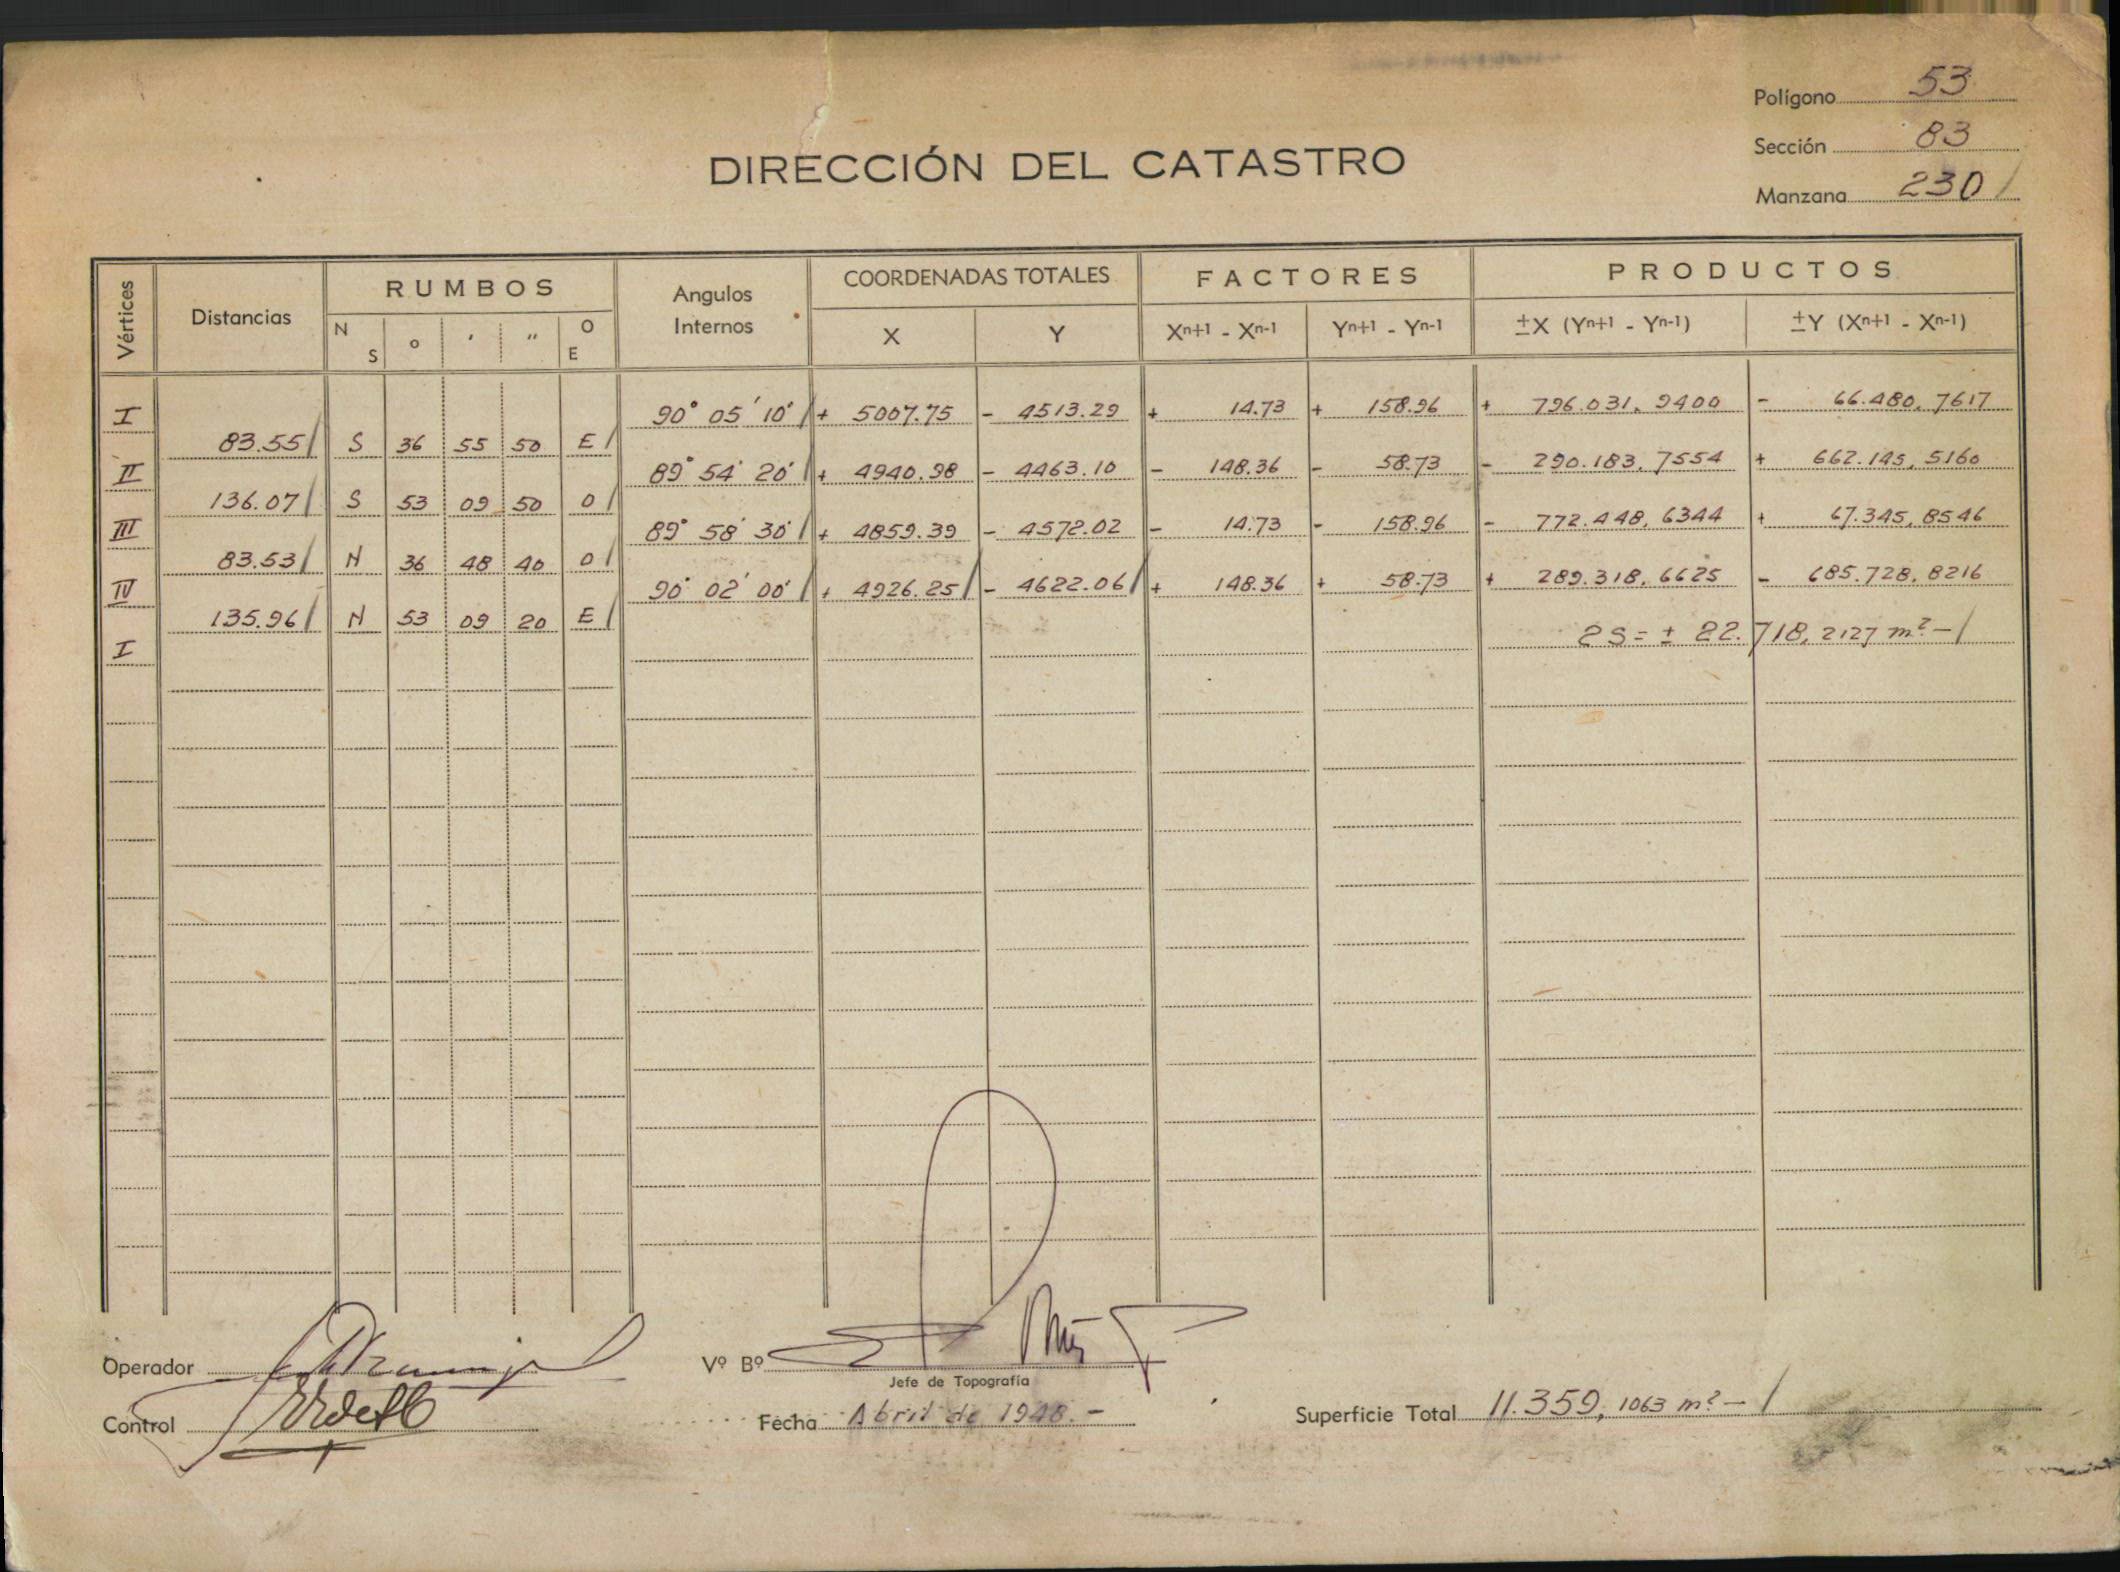 Polígono 53
Sección 83
Manzana 230 /
DIRECCIÓN DEL CATASTRO
Vértices Distancias RUMBOS Angulos Internos COORDENADAS TOTALES FACTORES PRODUCTOS
N S o ' " O E X Y Xn+1 - Xn-1 Yn+1 - Yn-1 ±X (Yn+1 - Yn-1) ±Y (Xn+1 - Xn-1)
I 90° 05' 10' / + 5007.75 - 4513.29 + 14.73 + 158.96 + 796.031,9400 - 66.480,7617
83.55 / S 36 55 50 E /
II 89° 54' 20' / + 4940.98 - 4463.10 - 148.36 - 58.73 - 290.183,7554 + 662.145,5160
136.07 / S 53 09 50 O /
III 89° 58' 30' / + 4859.39 - 4572.02 - 14.73 - 158.96 - 772.448,6344 + 67.345,8546
83.53 / N 36 48 40 O /
IV 90° 02' 00' / + 4926.25 / - 4622.06 / + 148.36 + 58.73 + 289.318,6625 - 685.728,8216
135.96 / N 53 09 20 E /
I 2S = ± 22.718,2127 m² - /
Operador
Vº Bº
Jefe de Topografía
Control
Fecha Abril de 1948.-
Superficie Total 11.359,1063 m² - /